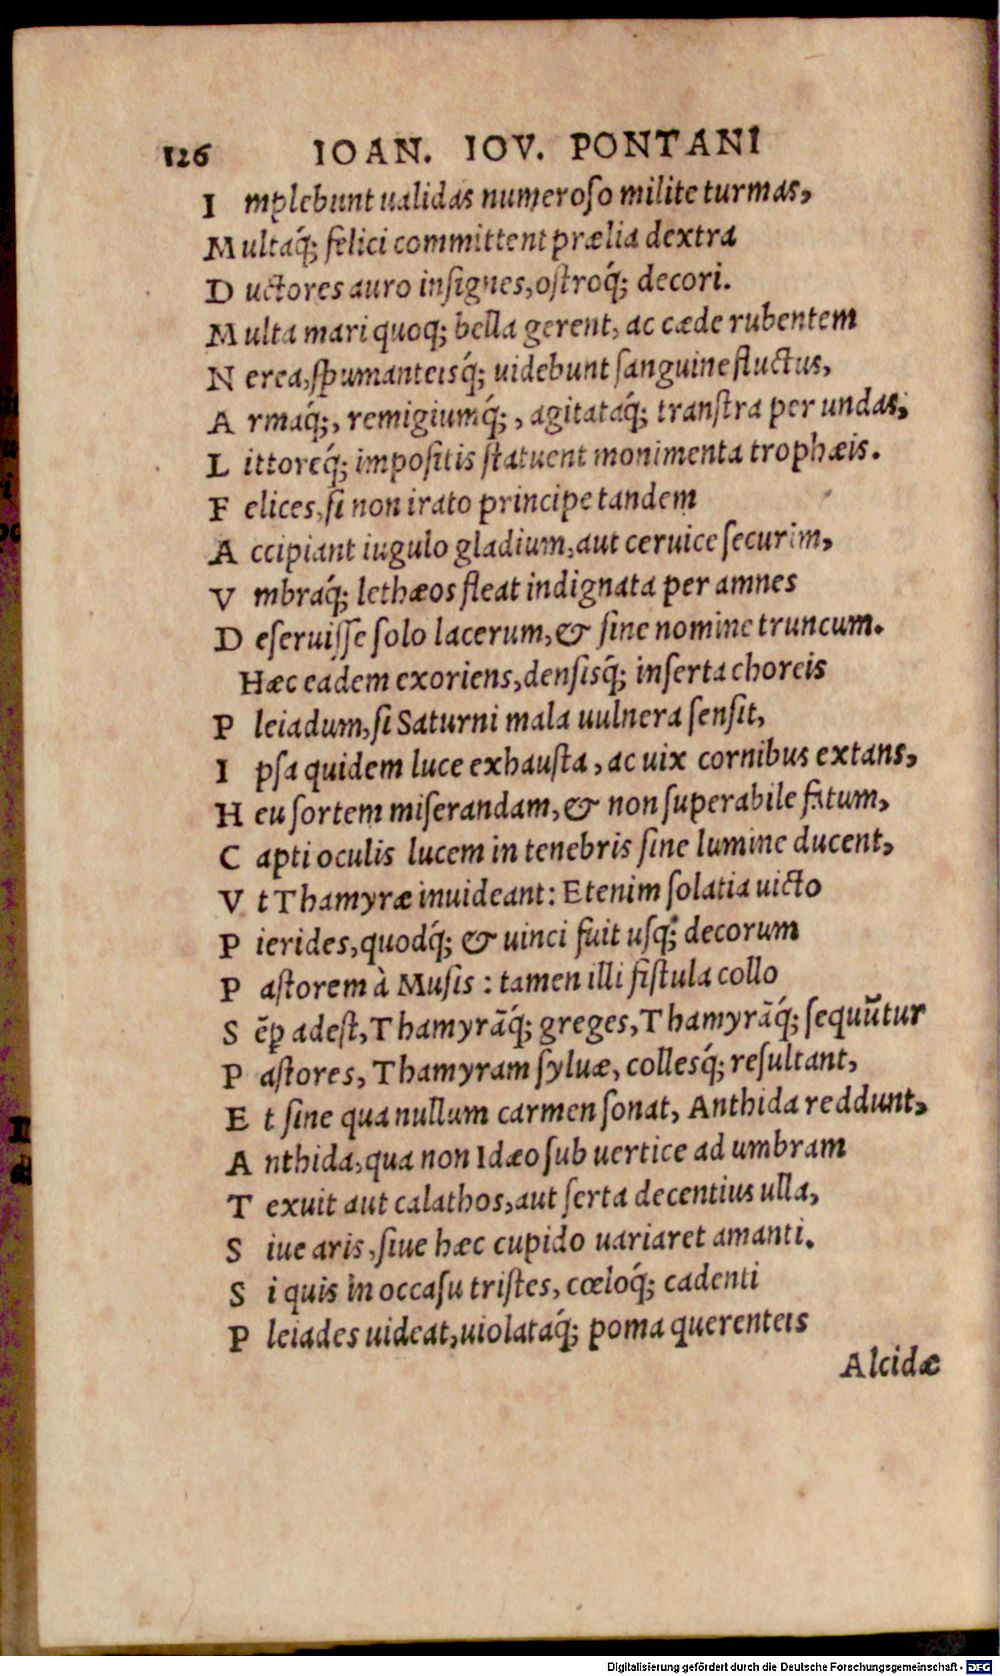 126 IOAN. IOV. PONTANI
I mplebunt ualidas numeroso milite turmas,
M ultaq́; felici committent prælia dextra
D uctores auro insignes, ostroq́; decori.
M ulta mari quoq; bella gerent, ac cæde rubentem
N erea, spumanteisq́; uidebunt sanguine fluctus,
A rmaq́;, remigiumq́;, agitataq́; transtra per undas,
L ittoreq́; impositis statuent monimenta trophæis.
F elices, si non irato principe tandem
A ccipiant iugulo gladium, aut ceruice securim,
V mbraq́; lethæos fleat indignata per amnes
D eseruisse solo lacerum, & sine nomine truncum.
Hæc eadem exoriens, densisq́; inserta choreis
P leiadum, si Saturni mala uulnera sensit,
I psa quidem luce exhausta, ac uix cornibus extans,
H eu sortem miserandam, & non superabile fatum,
C apti oculis lucem in tenebris sine lumine ducent,
V t Thamyræ inuideant: Etenim solatia uicto
P ierides, quodq́; & uinci fuit usq; decorum
P astorem à Musis: tamen illi fistula collo
S ẽꝑ adest, Thamyrãq́; greges, Thamyrãq́; sequũtur
P astores, Thamyram syluæ, collesq́; resultant,
E t sine qua nullum carmen sonat, Anthida reddunt,
A nthida, qua non Idæo sub uertice ad umbram
T exuit aut calathos, aut serta decentius ulla,
S iue aris, siue hæc cupido uariaret amanti.
S i quis in occasu tristes, cœloq́; cadenti
P leiades uideat, uiolataq́; poma querenteis
Alcidæ
Digitalisierung gefördert durch die Deutsche Forschungsgemeinschaft - DFG